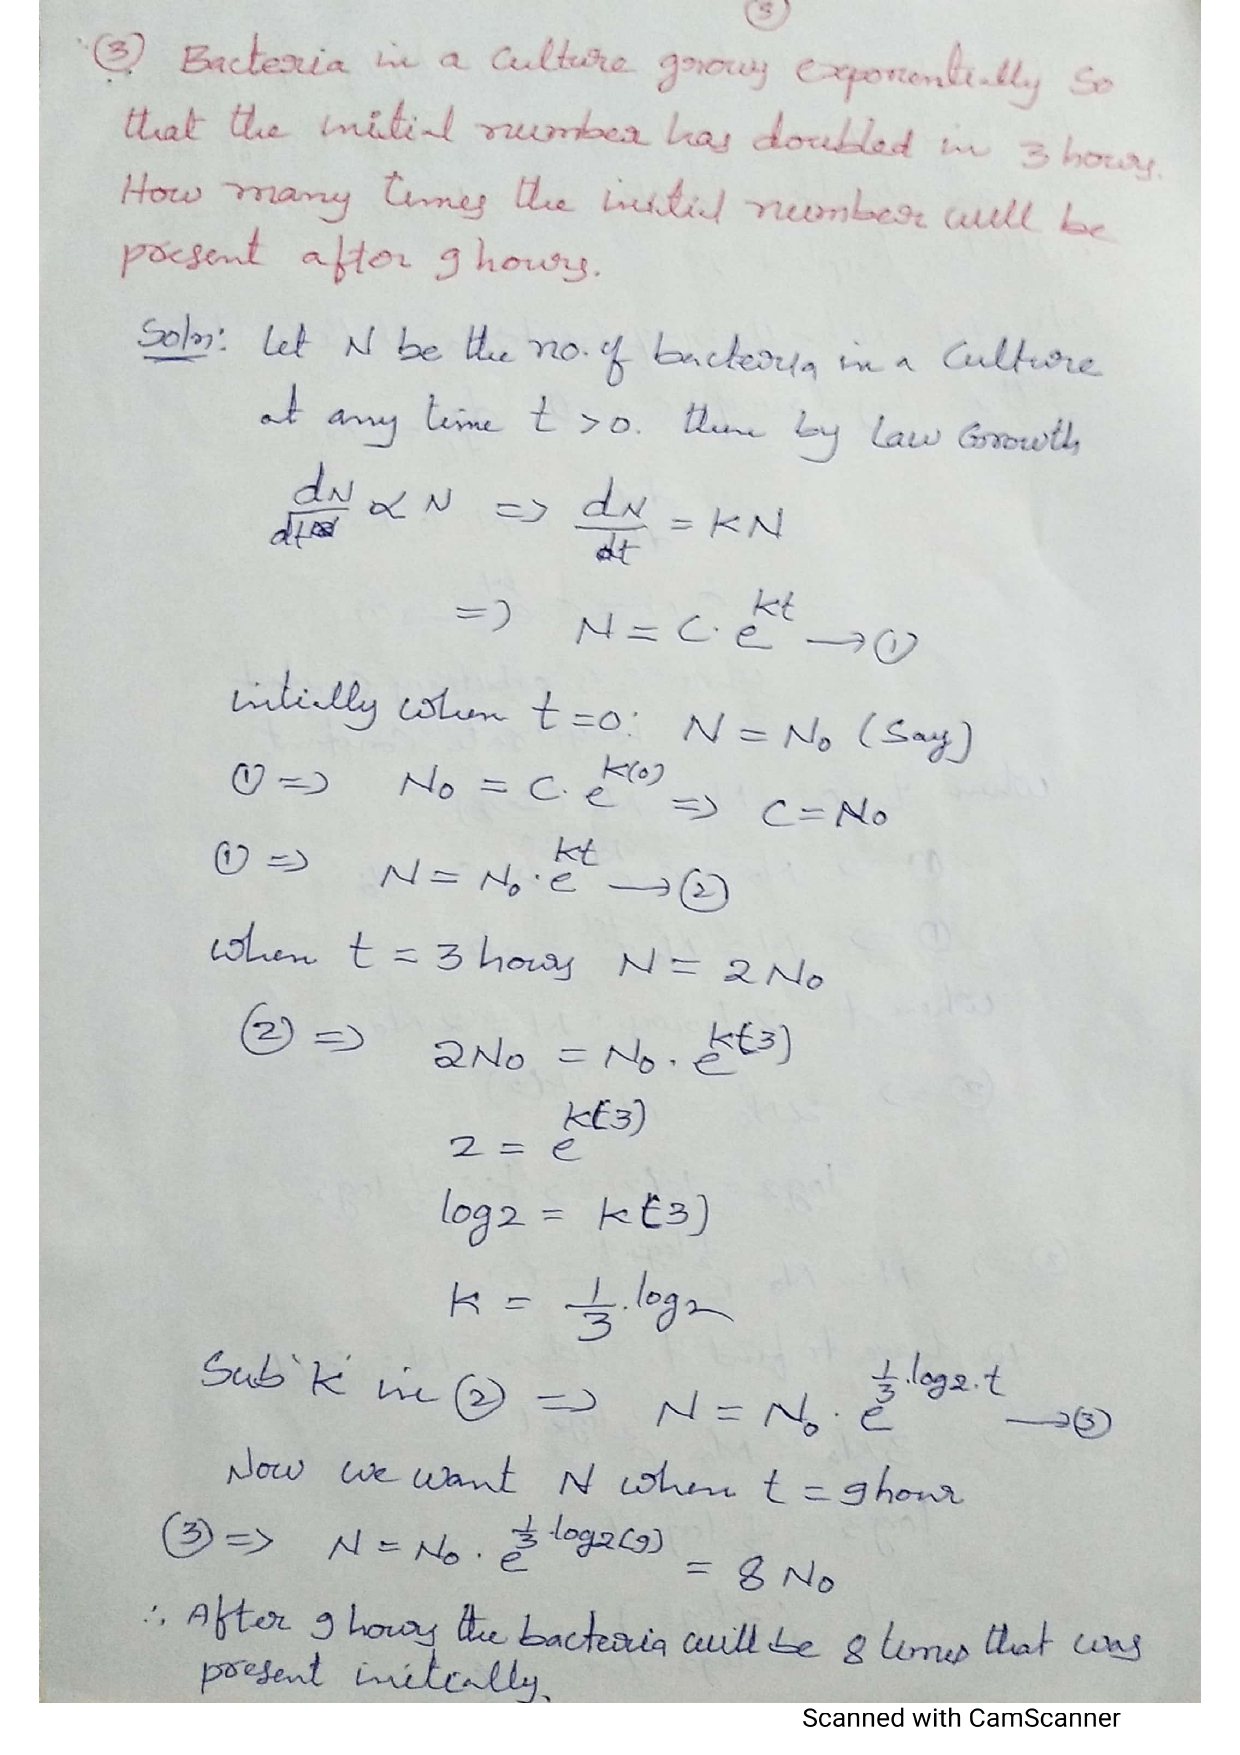 ③
③ Bacteria in a culture grows exponentially so
that the initial number has doubled in 3 hours.
How many times the initial number will be
present after 9 hours.
Soln: Let N be the no. of bacteria in a culture
at any time t > 0. then by Law Growth
dN/dt ∝ N => dN/dt = KN
=> N = C. e^kt → ①
initially when t = 0: N = N₀ (Say)
① => N₀ = C. e^k(0) => C = N₀
① => N = N₀ . e^kt → ②
when t = 3 hours N = 2N₀
② => 2N₀ = N₀ . e^k(3)
2 = e^k(3)
log2 = k(3)
K = 1/3 . log2
Sub 'K' in ② => N = N₀ . e^1/3 . log2 . t → ③
Now we want N when t = 9 hour
③ => N = N₀ . e^1/3 . log2(9) = 8 N₀
∴ After 9 hours the bacteria will be 8 times that was
present initially.
Scanned with CamScanner